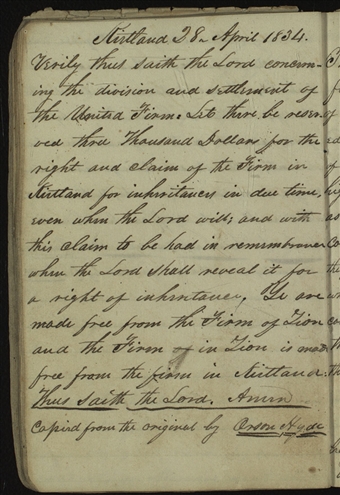 Kirtland 28th April 1834.
Verily thus saith the Lord concern-
ing the division and settlement of
the United Firm. Let there be reser
ved three Thousand Dollars for the
right and claim of the Firm in
Kirtland for inheritances in due time,
even when the Lord will; and with
this claim to be had in remembrance
when the Lord shall reveal it for
a right of inheritance, Ye are
made free from the Firm of Zion
and the Firm in Zion is made
free from the firm in Kirtland.
Thus saith the Lord. Amen
Copied from the original by Orson Hyde